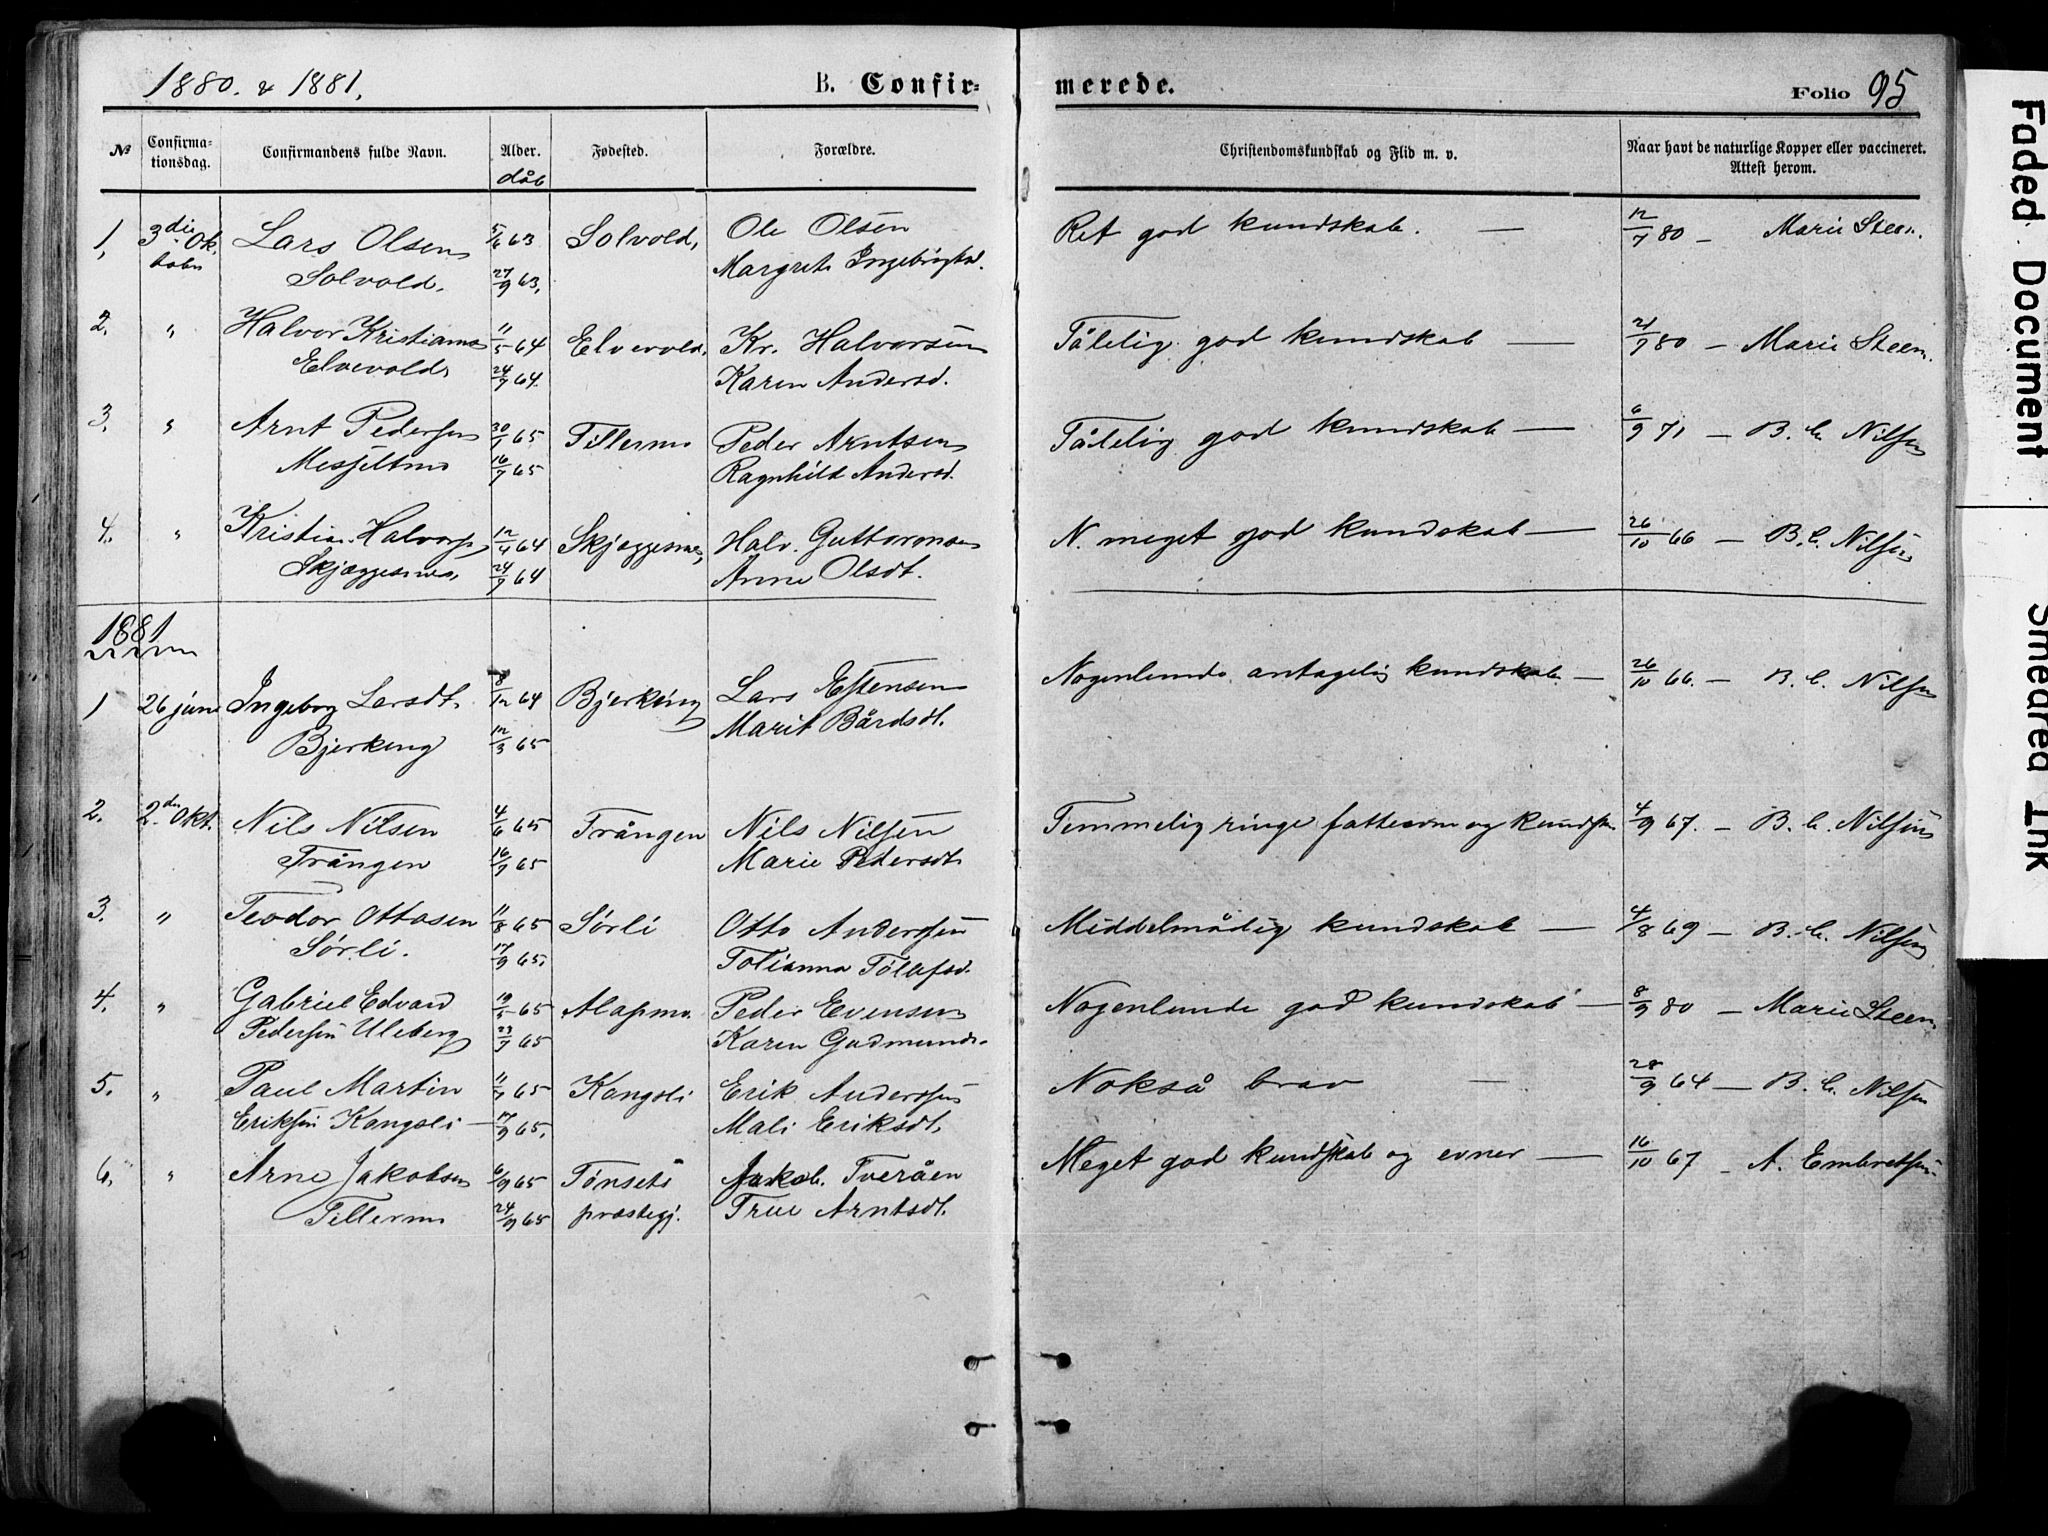 1880. & 1881.
B. Confir=
merede.
Folio 95
№
Confirma-
tionsdag.
Confirmandens fulde Navn.
Alder.
dåb
Fødested.
Forældre.
Christendomskundskab og Flid m. v.
Naar havt de naturlige Kopper eller vaccineret.
Attest herom.
1, 3die Ok. Lars Olsen 5/6 63 Solvold, Ole Olsen Ret god kundskab. — 12/7 80 – Marie Steen.
tober Solvold. 27/9 63, Margrete Ingebrigtsd.
2. " Halvor Kristians 11/5 64 Elvevold, Kr. Halvorsen Tålelig god kundskab — 21/7 80 – Marie Steen.
Elvevold, 24/7 64. Karen Andersd.
3. " Arnt Pedersen 30/1 65 Tillermo Peder Arntsen Tålelig god kundskab — 6/9 71 – B. C. Nilsen
Messeltmo 16/7 65 Ragnhild Andersd.
4. " Kristian Halvors 12/4 64 Skjæggesnes, Halv. Guttormsen N. meget god kundskab — 26/10 66 – B. C. Nilsen
Skjæggesnes, 24/7 64 Anne Olsdt.
1881
1 26 juni Ingeborg Larsdt. 8/12 64 Bjerking Lars Estensen Nogenlunde antagelig kundskab. — 26/10 66. – B. C. Nilsen
Bjerking 12/3 65 Marit Bårdsdt.
2. 2den Okt. Nils Nilsen 4/6 65 Trången Nils Nilsen Temmelig ringe fatteevne og kundsk 4/9 67. – B. C. Nilsen
Trången 16/7 65 Marie Pedersdt.
3. " Teodor Ottosen 11/8 65 Sørli Otto Andersen Middelmådig kundskab — 4/8 69 – B. C. Nilsen
Sørli. 17/9 65. Tollefsd.
4. " Gabriel Edvard 19/5 65 Peder Evensen Nogenlunde god kundskab — 8/9 80 – Marie Steen
Pedersen Uleberg 23/7 65 Karen Gudmunds.
5. " Paul Martin 11/7 65 Kangsli Erik Andersen Nokså brav — 28/9 64 – B. C. Nilsen
Eriksen Kangsli – 17/9 65. Mali Eriksdt.
6. " Arne Jakobsen 6/9 65 Tønsets Jakob. Tveråen Meget god kundskab og evner — 16/10 67 – A. Embretsen
Tillermo 24/9 65 præstegj. Arntsdt.
Faded Document
Smeared Ink